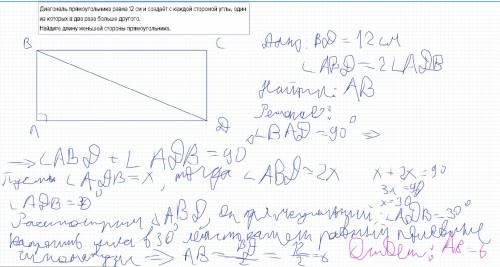 Диагональ прямоугольника равна 12 см и создаёт с каждой стороной углы, один
из которых в два раза больше другого.
Найдите длину меньшей стороны прямоугольника.
B C
A D
Дано: BD = 12 см
∠ABD = 2∠ADB
Найти: AB
Решение:
∠BAD = 90° ⇒
⇒ ∠ABD + ∠ADB = 90
Пусть ∠ADB = x, тогда ∠ABD = 2x x + 2x = 90
3x = 90
x = 30
∠ADB = 30°
Рассмотрим △ABD, он прямоугольный: ∠ADB = 30°
Напротив угла в 30° лежит катет равный половине
гипотенузы ⇒ AB = BD/2 = 12/2 = 6
Ответ: AB = 6